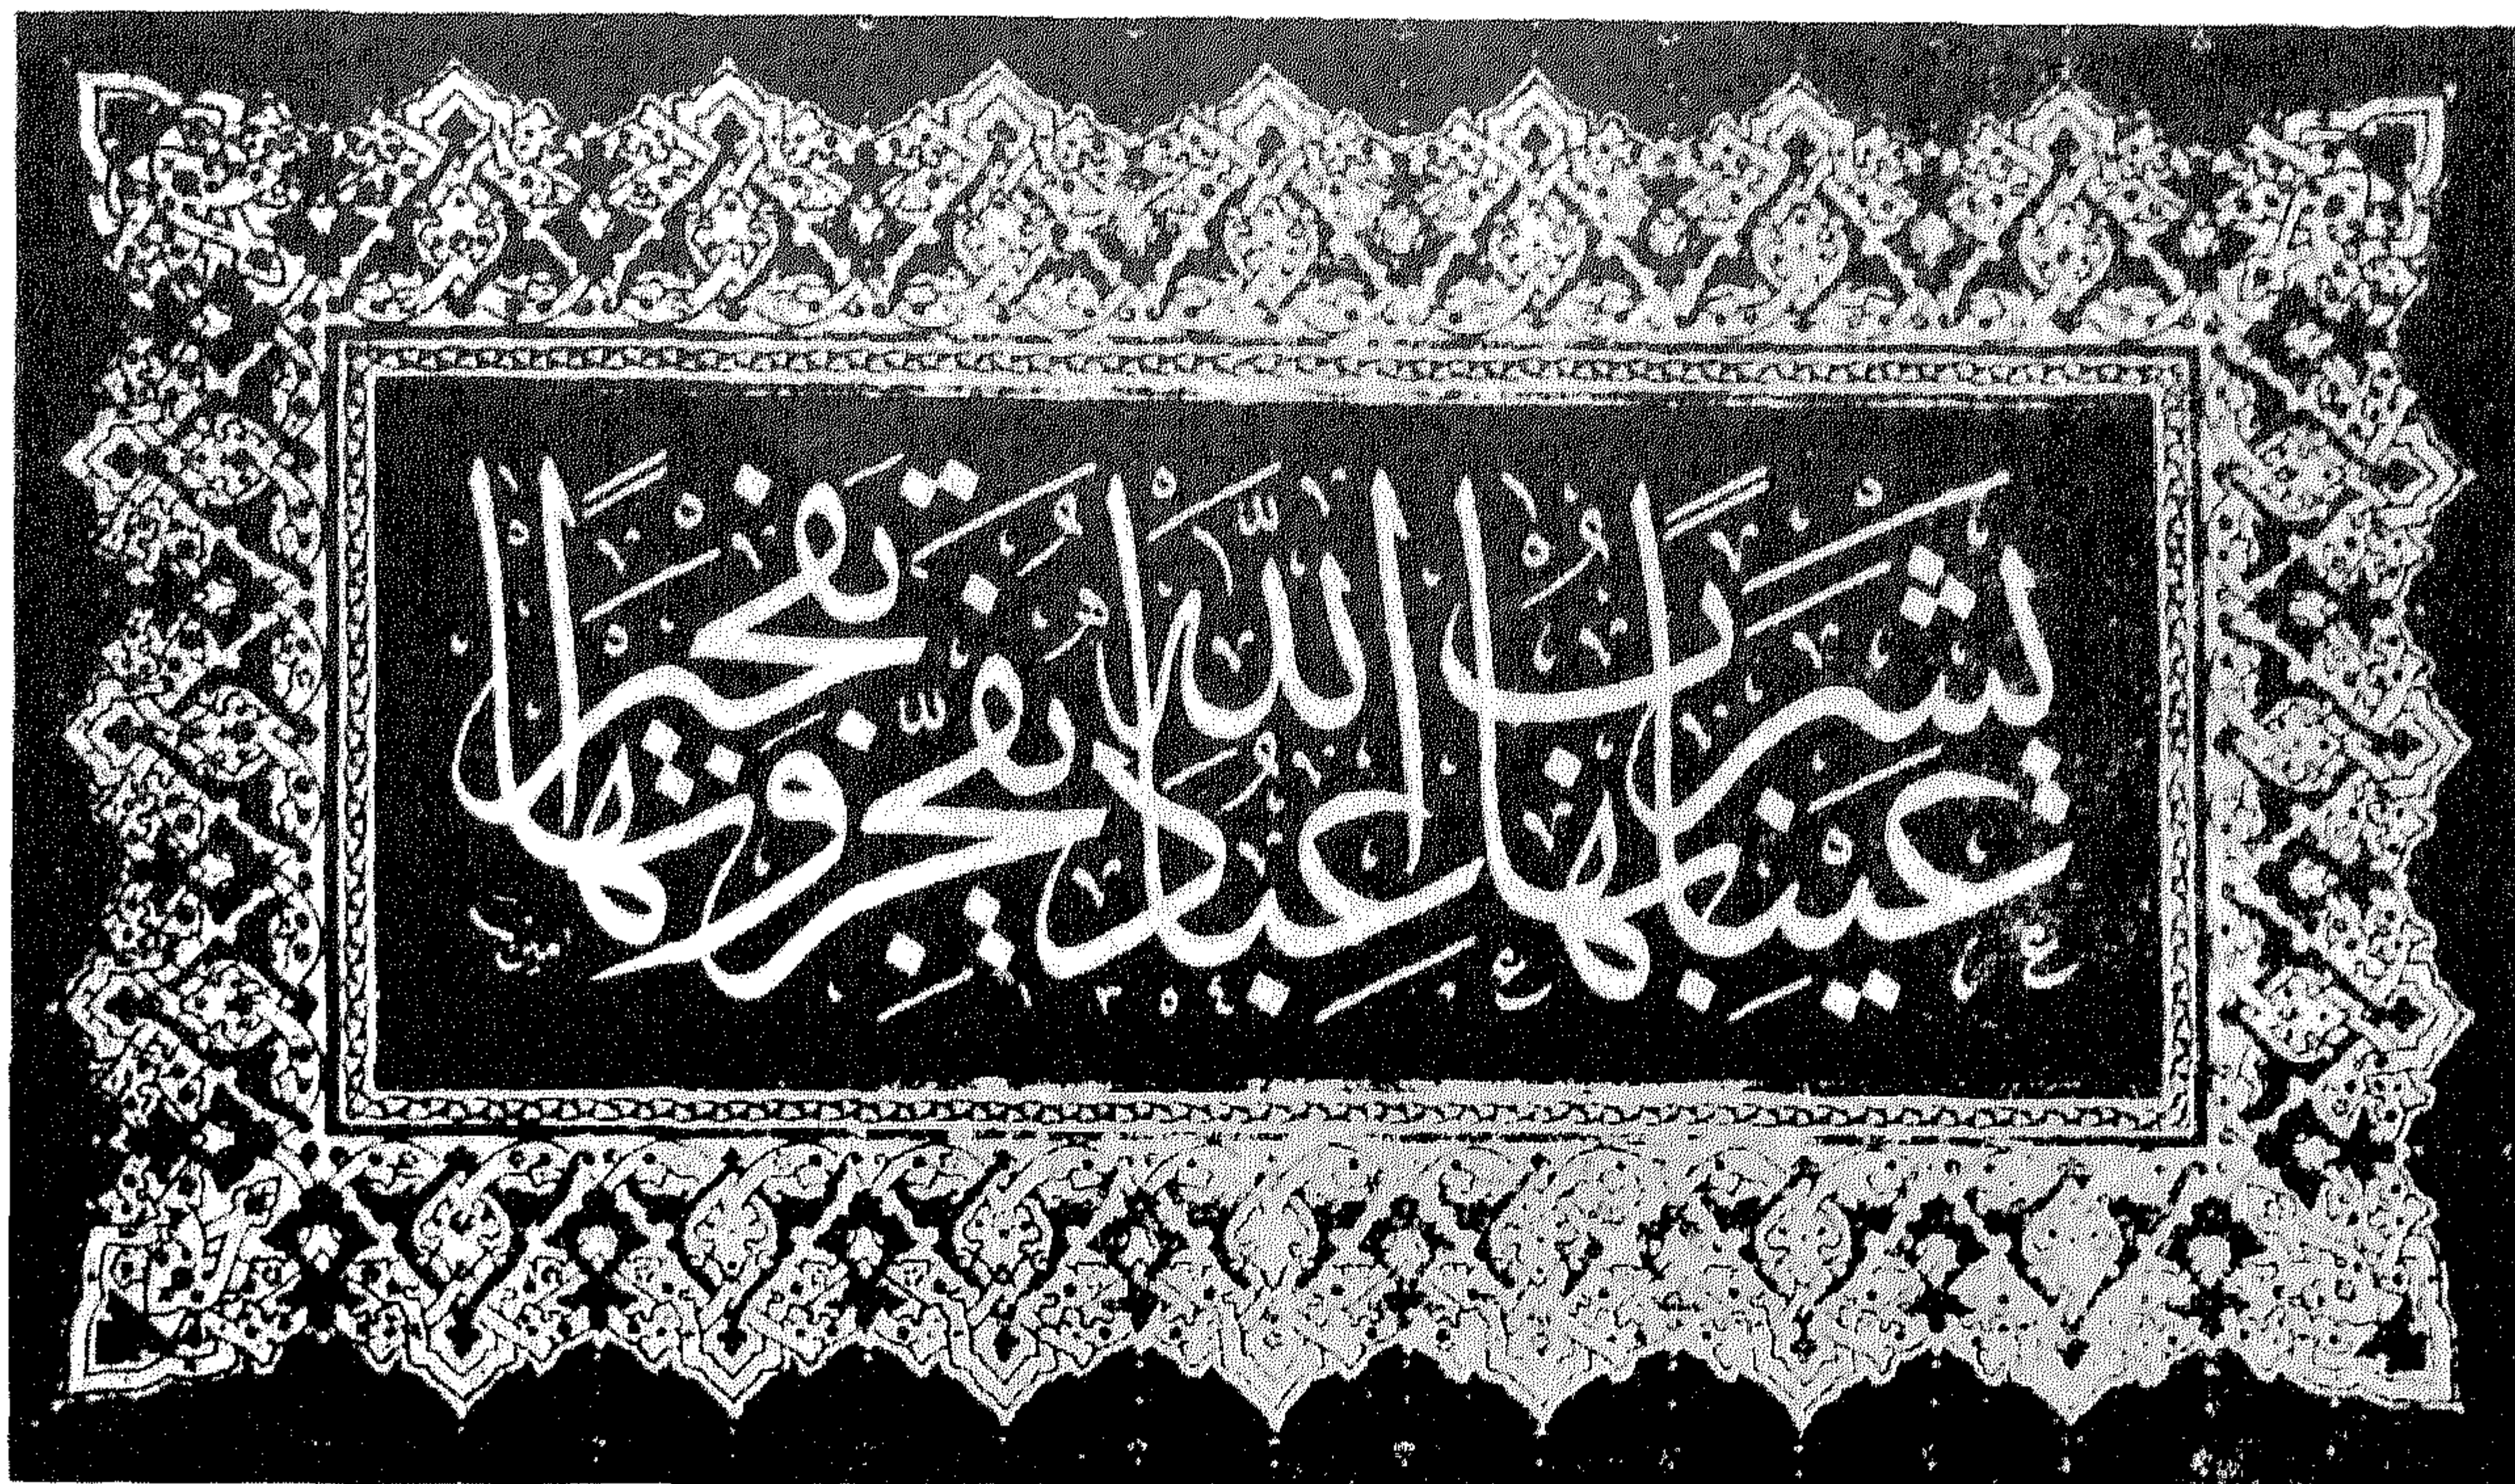 عَيْنًا يَشْرَبُ بِهَا عِبَادُ اللّٰهِ يُفَجِّرُونَهَا تَفْجِيرًا
١٣٥٤